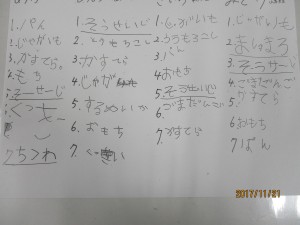 1. パん
2. じゃがいも
3. かすてら。
4. もち
5. そーせーじ
6. くっきー
7 ちつわ
1. そうせいじ
2. とうもろこし
3. かすてら
4. じゃが
5. するめいか
6. おもち
7.
1. じゃがいも
2. とうもろこし
3. パん
4. おもち
5. そうせいじ
6. ごまだんご
7. かすてら
1. じゃがいも
3. そうせーじ
4. ごまだんご
5. かすてら
6. おもち
7. ぱん
2017/11/21